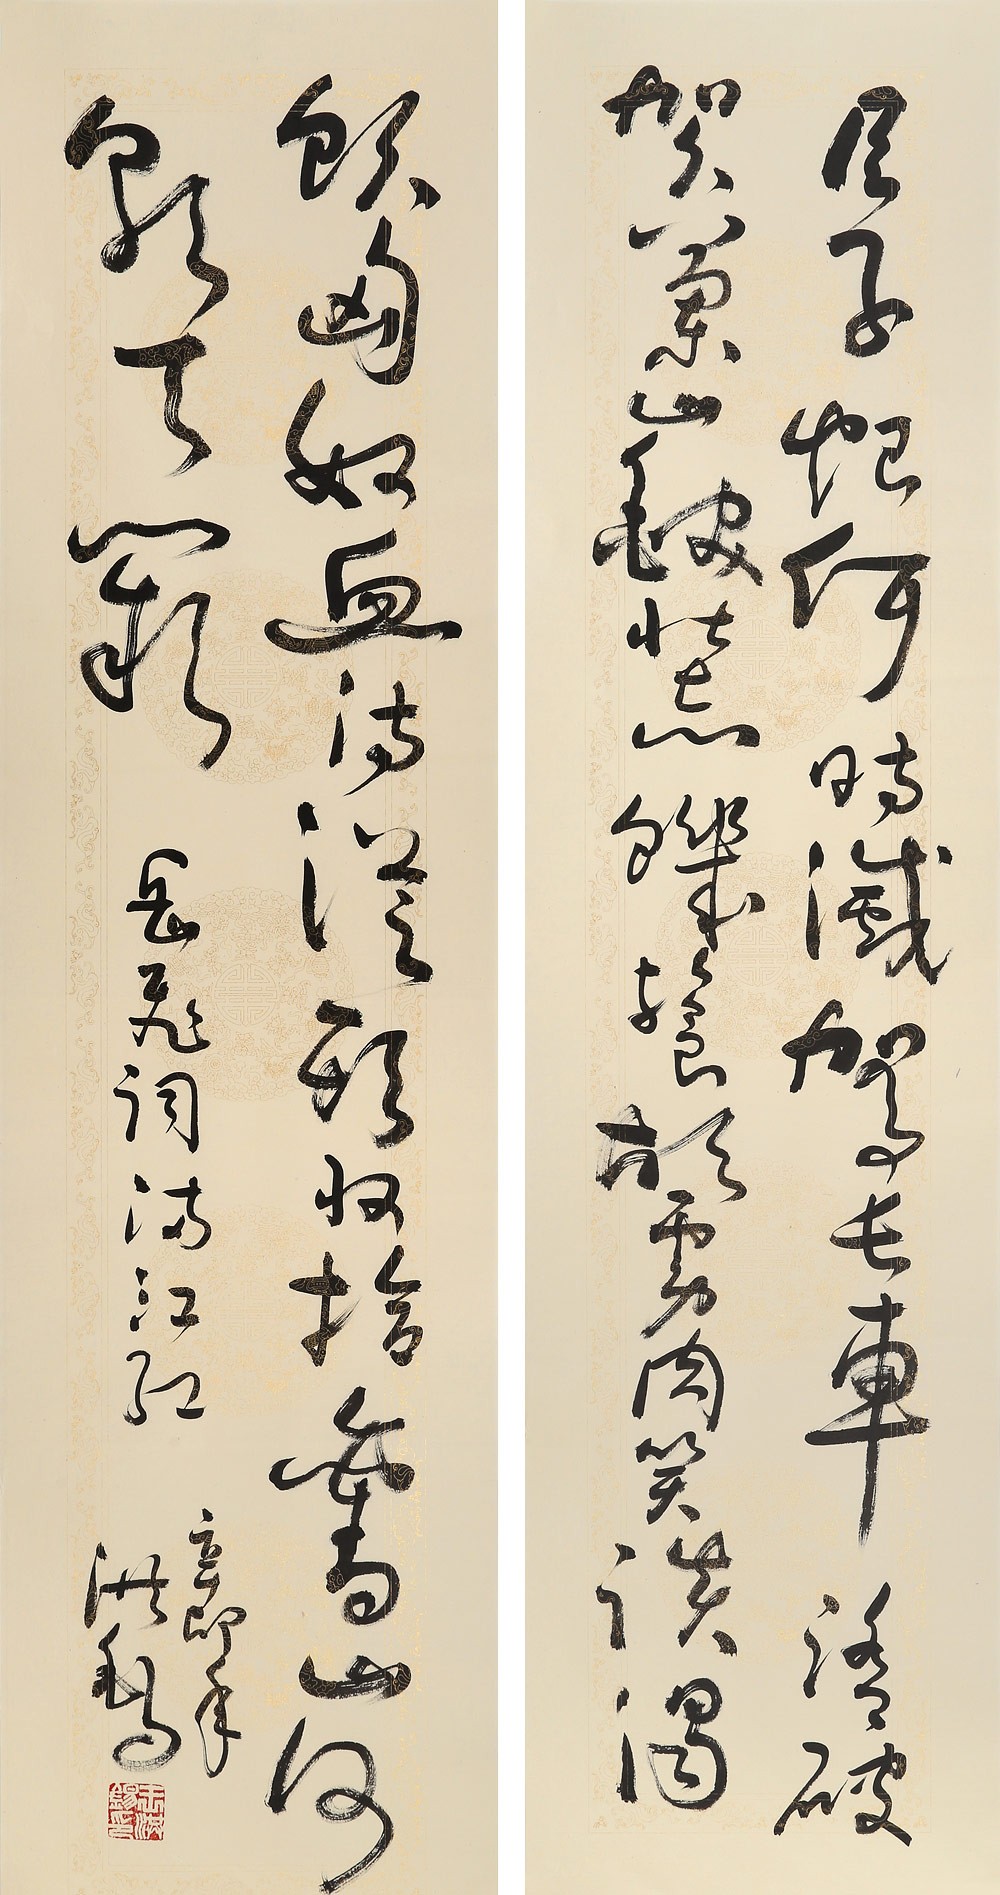 臣子恨何時滅駕長車踏破
賀蘭山缺壯志饑餐胡虜肉笑談渴
飲匈奴血待從頭收拾舊山河
朝天闕
岳飛詞滿江紅
辛卯年
洪錫
王洪錫印